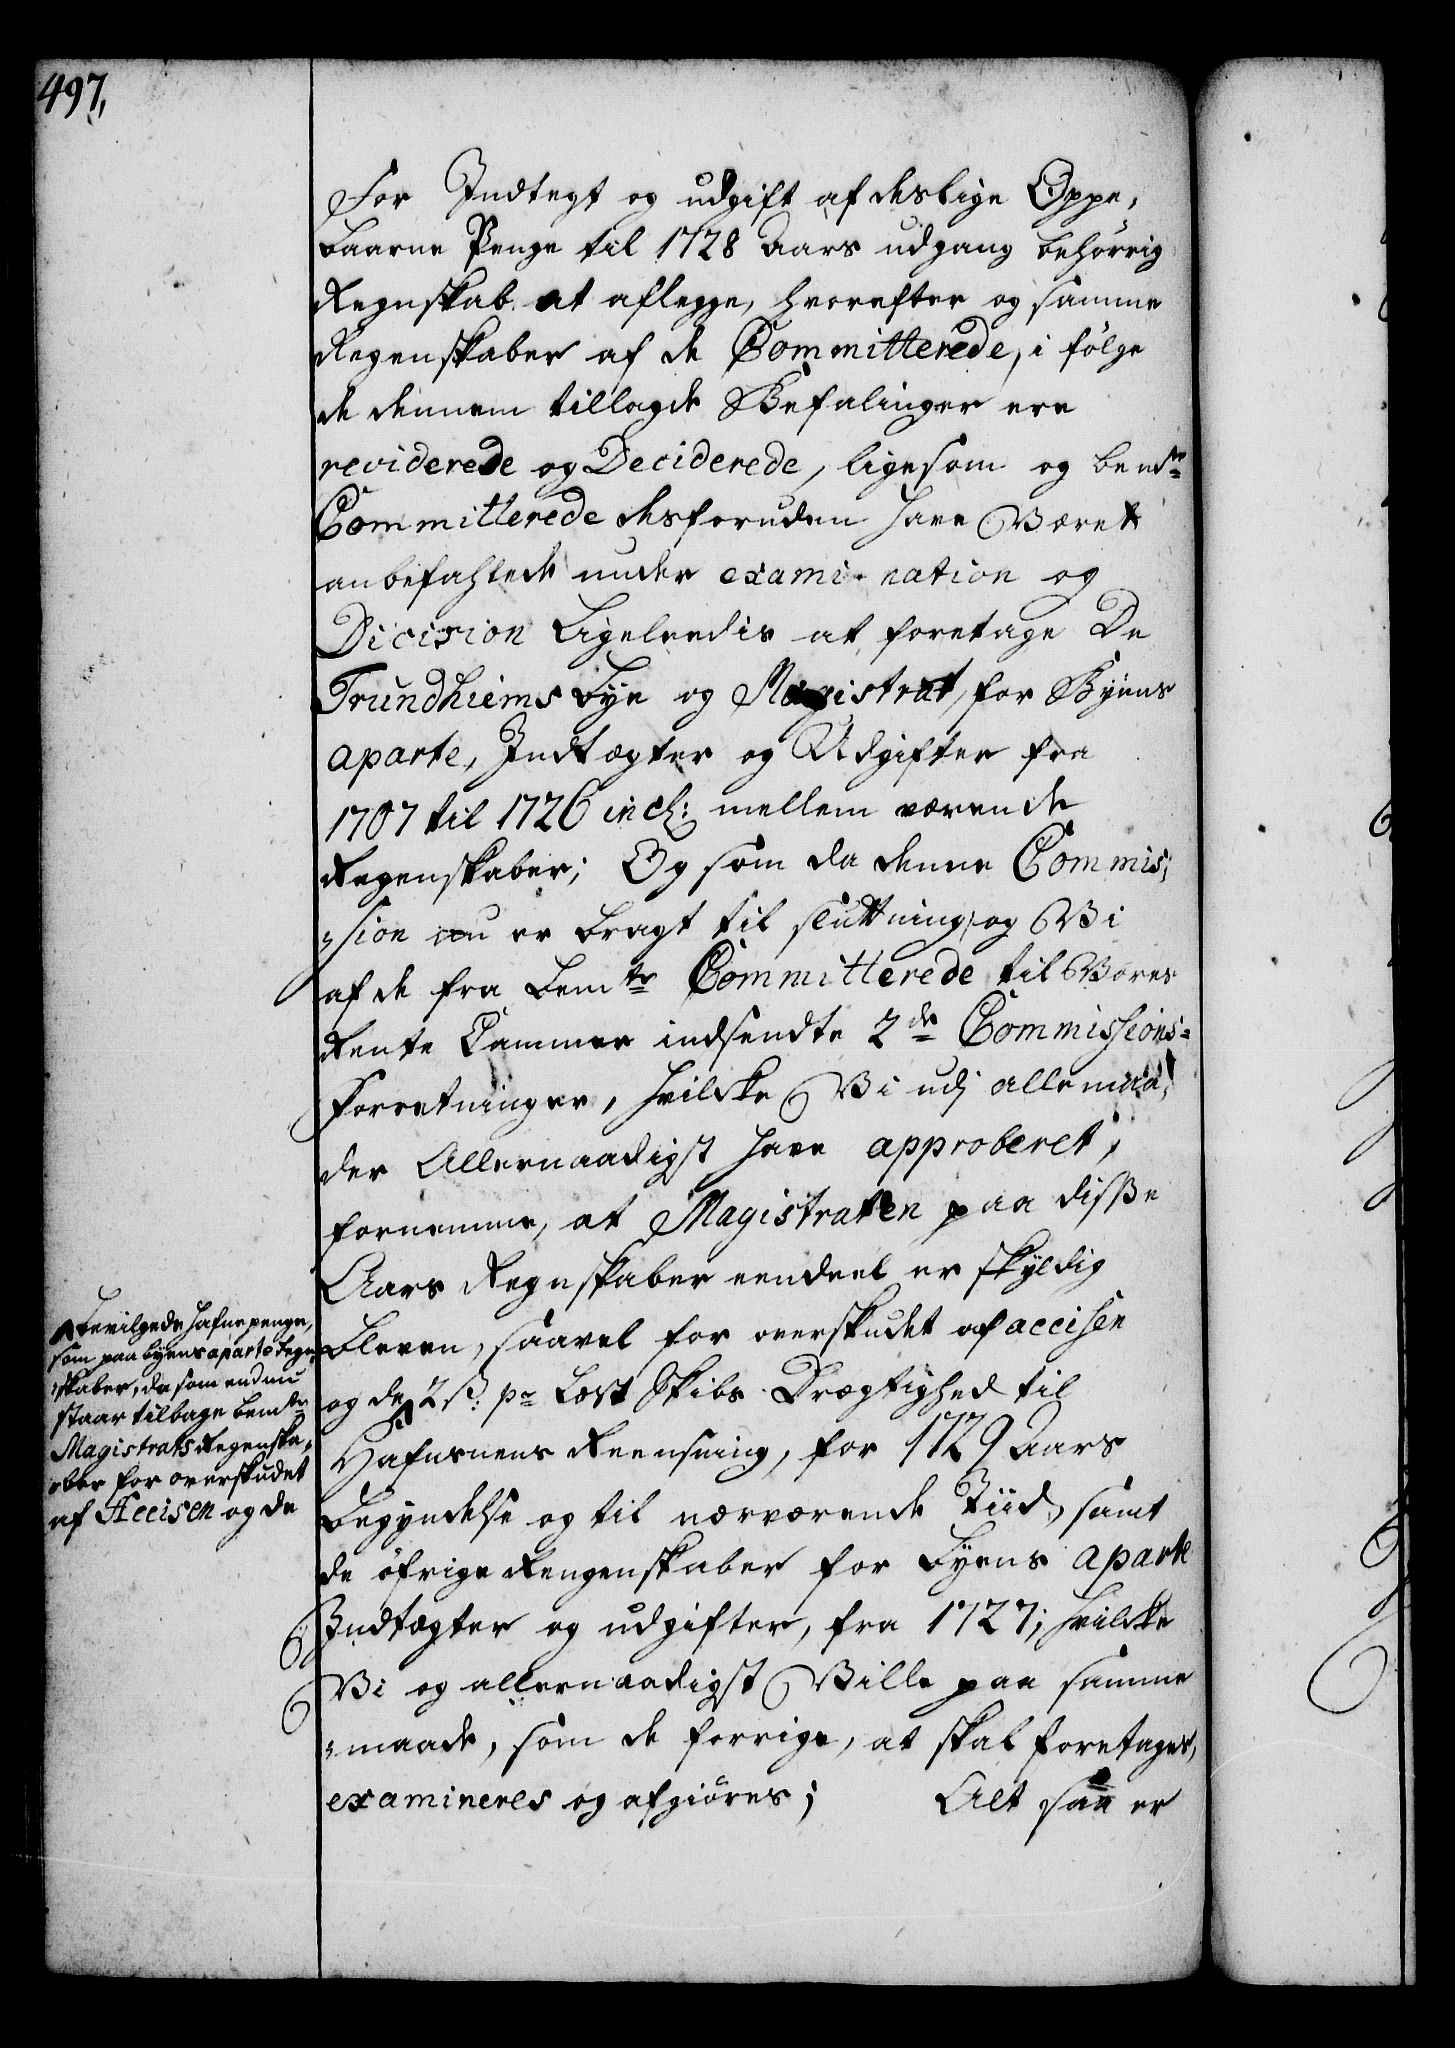 497,
For Indtegt og udgift af deslige Oppe,
baarne Penge til 1728 Aars udgang behörrig
Regnskab at aflegge, hvorefter og samme
Regenskaber af de Committerede, i fölge
de dennem tillagde Befalinger ere
reviderede og Deciderede, ligesom og bemte
Committerede desforuden have Været
anbefahlede under exami-nation og
Dicision Ligeleedis at foretage De
Trundhiems Bye og Magistrat, for Byens
aparte, Indtægter og Udgifter fra
1707 til 1726 incl: mellem værende
Regenskaber; Og som da denne Commis;
;sion nu er bragt til sluttning, og Vi
af de fra bemte Committerede til Vores
Rente Cammer indsendte 2de Commissions=
Forretninger, hvilcke Vi udj alle maa,
der Allernaadigst have approberet,
fornemme, at Magistraten paa disse
Aars Regnskaber eendeel er skyldig
bleven, saavel for overskudet af accisen
og de 2 ß: pr Læst Skibs Drægtighed til
Hafnens Reensning, for 1729 Aars
Begyndelse og til nærværende Tiid, samt
de öfrige Rengenskaber for Byens aparte
Indtægter og udgifter, fra 1727; hvilcke
Vi og allernaadigst Ville paa samme
;maade, som de forrige, at skal foretages,
examineres og afgiöres; Alt saa er
bevilgede hafnepenge,
som paa byens aparte Regn,
;skaber, da som end nu
staar tilbage bemte
Magistrats Regenska,
;ber for overskudet
af Accisen og de